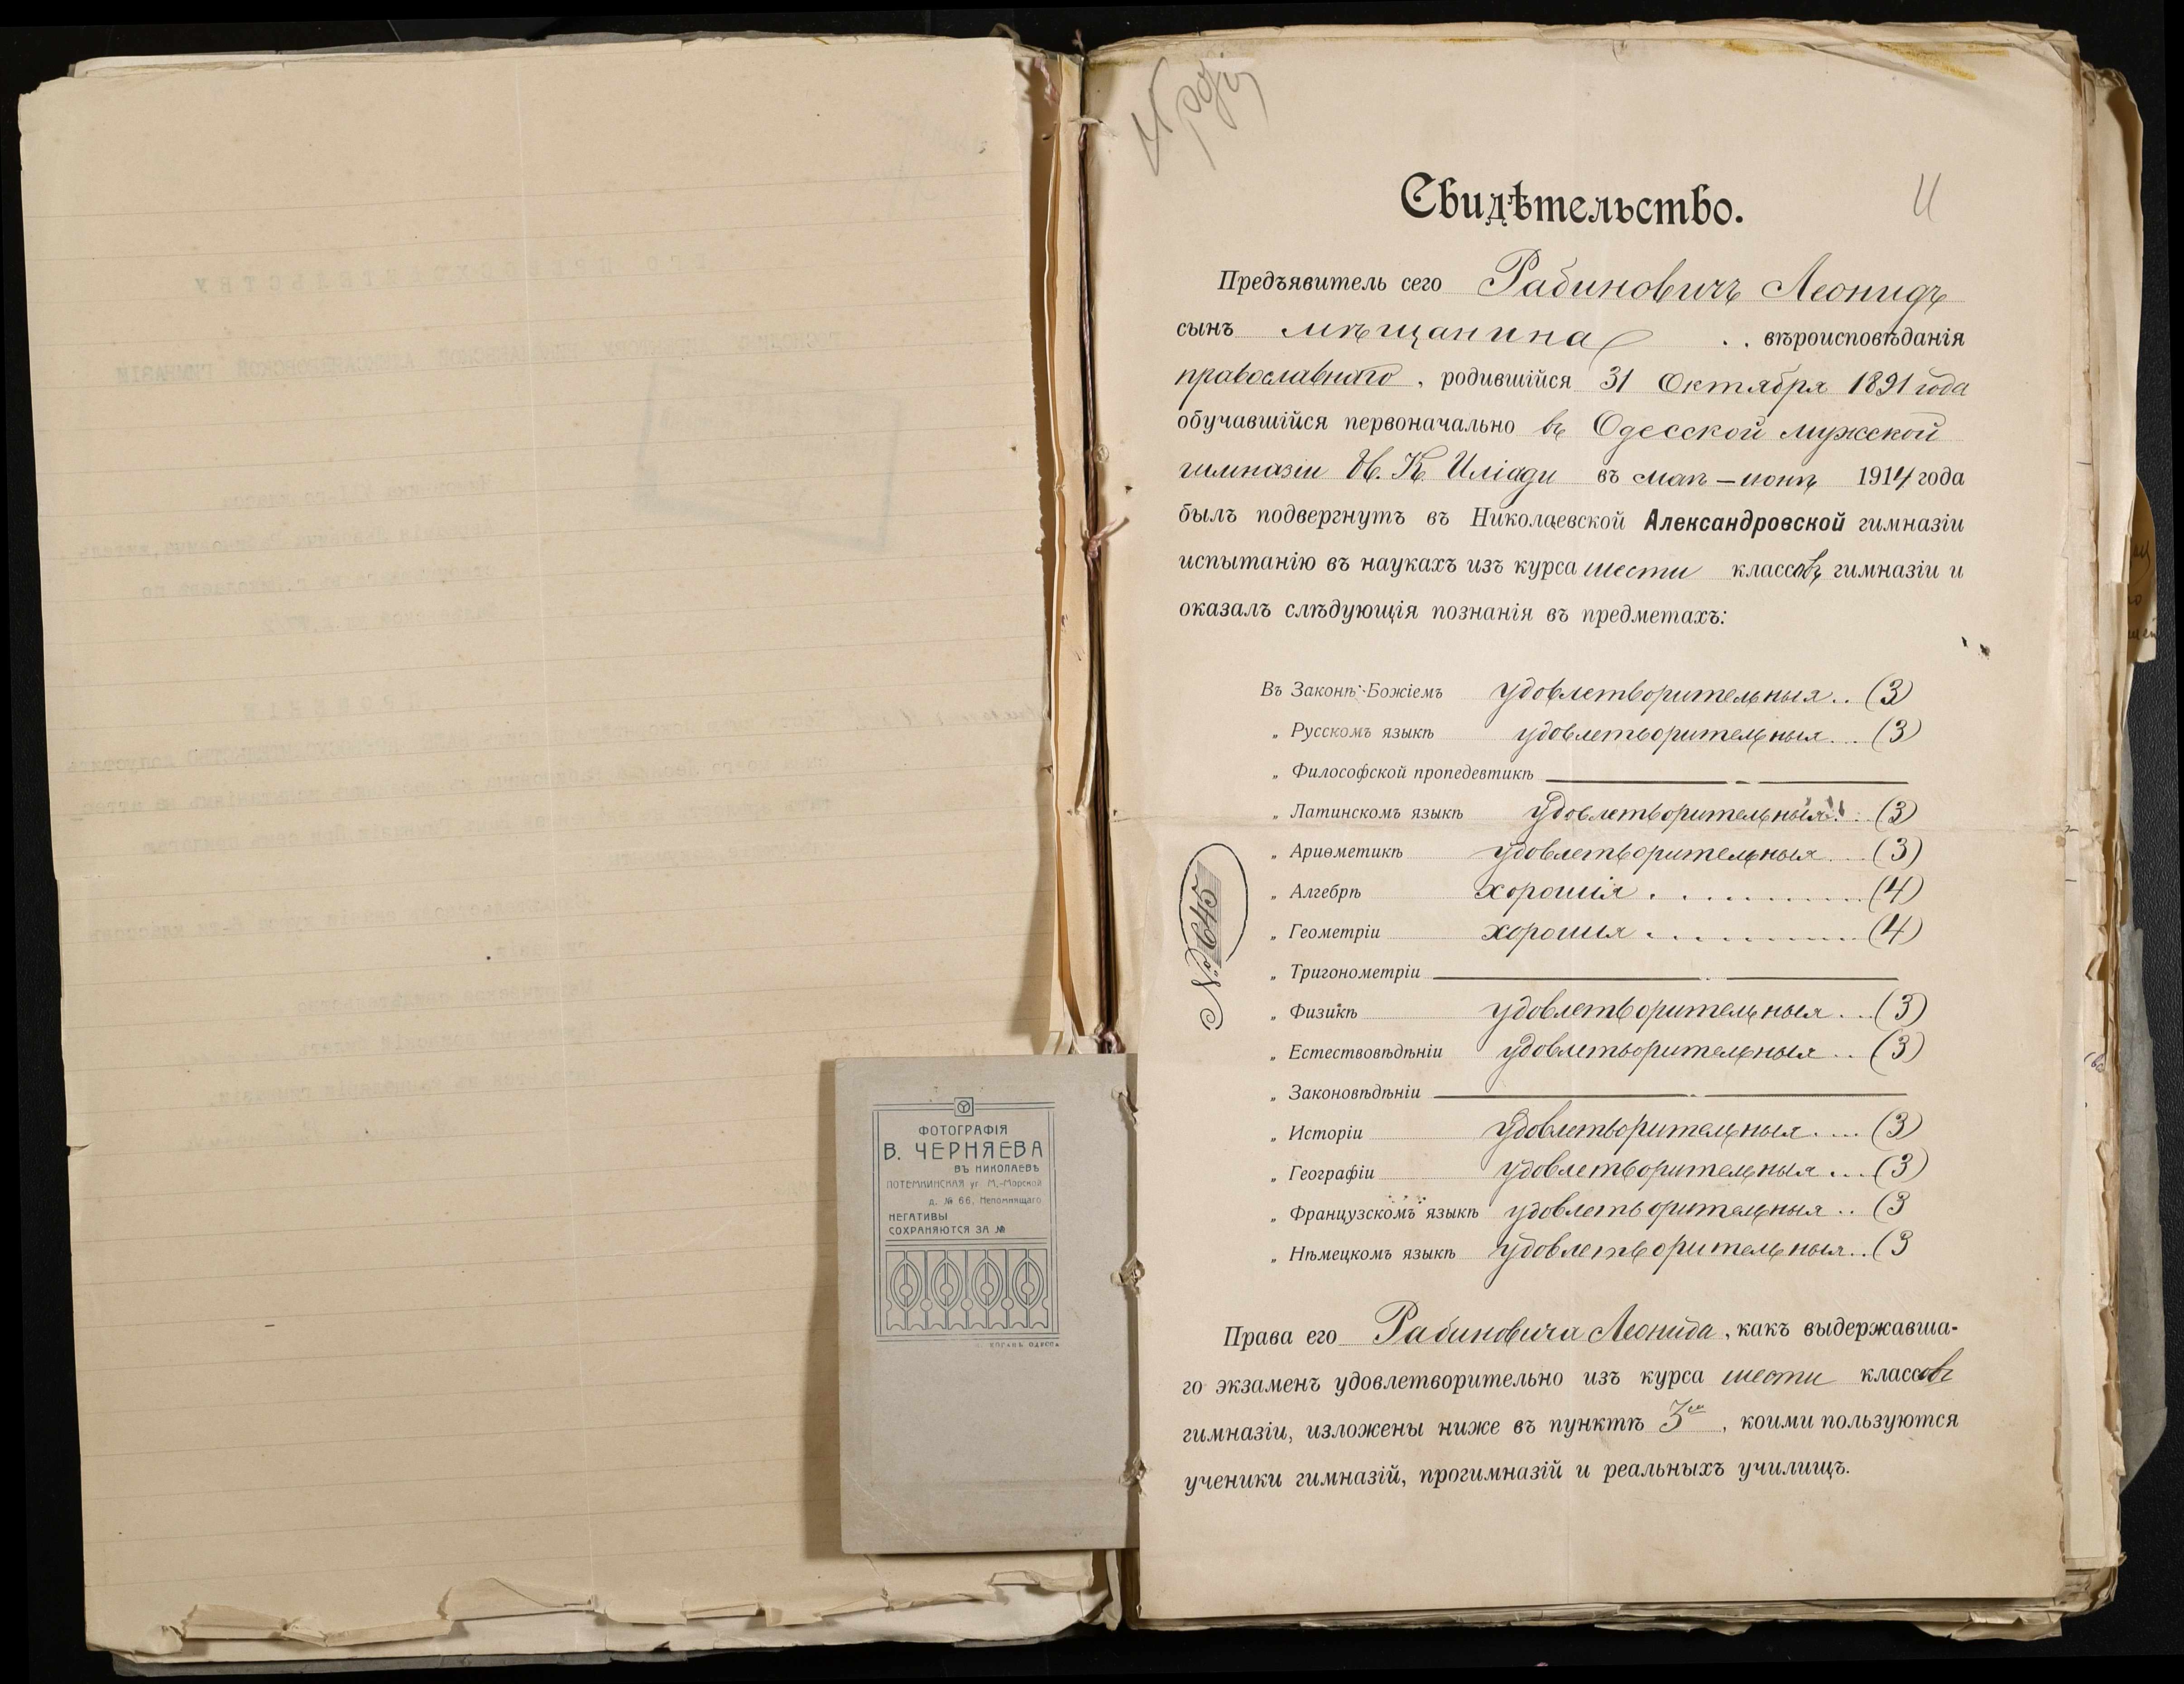 ФОТОГРАФІЯ
В. ЧЕРНЯЕВА
ВЪ НИКОЛАЕВѢ
ПОТЕМКИНСКАЯ уг М.-Морской
д. № 66, Непомнящаго
НЕГАТИВЫ
СОХРАНЯЮТСЯ ЗА №
ОДЕССА
Свидѣтельство.
Предъявитель сего Рабиновичъ Леонидъ
сынъ мѣщанина вѣроисповѣданія
православнаго, родившійся 31 Октября 1891 года
обучавшійся первоначально въ Одесской мужской
гимназіи И. К. Иліади въ маѣ – іюнѣ 1914 года
былъ подвергнутъ въ Николаевской Александровской гимназіи
испытанію въ наукахъ изъ курса шести классовъ гимназіи и
оказалъ слѣдующія познанія въ предметахъ:
Въ Законѣ Божіемъ удовлетворительныя.. (3)
„ Русскомъ языкѣ удовлетворительныя... (3)
„ Философской пропедевтикѣ
„ Латинскомъ языкѣ удовлетворительныя.. (3)
„ Ариѳметикѣ удовлетворительныя.... (3)
„ Алгебрѣ хорошія . . . . . . . . . . (4)
„ Геометріи хорошія . . . . . . . . . . (4)
„ Тригонометріи
„ Физикѣ удовлетворительныя. ... (3)
„ Естествовѣдѣніи удовлетворительныя.. (3)
„ Законовѣдѣніи
„ Исторіи удовлетворительныя.... (3)
„ Географіи удовлетворительныя.... (3)
„ Французскомъ языкѣ удовлетворительныя .. (3
„ Нѣмецкомъ языкѣ удовлетворительныя.. (3
№ 645
Права его Рабиновича Леонида, какъ выдержавша-
го экзаменъ удовлетворительно изъ курса шести классовъ
гимназіи, изложены ниже въ пунктѣ 3ем, коими пользуются
ученики гимназій, прогимназій и реальныхъ училищъ.